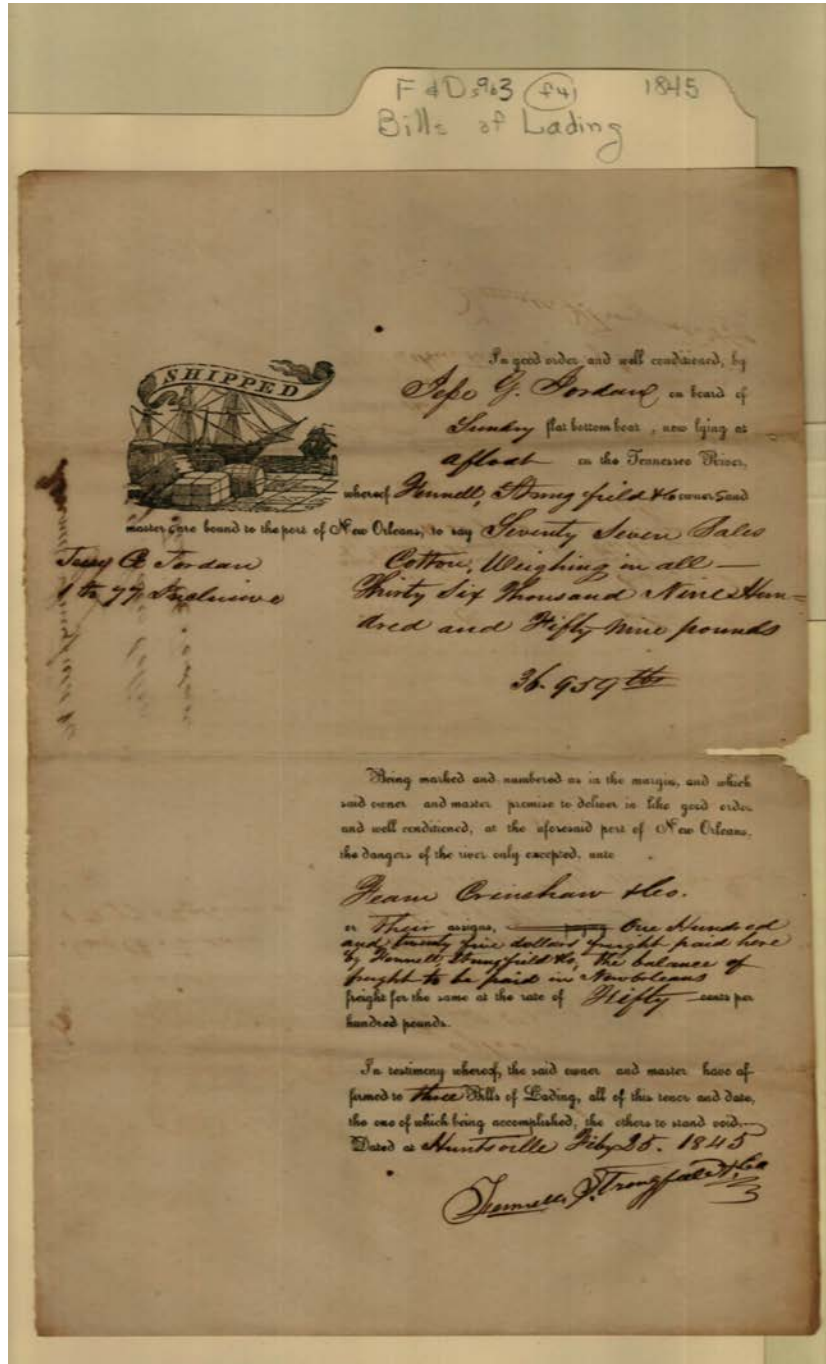 F & D 1963 f41 1845
Bills of Lading
SHIPPED
In good order and well conditioned, by
G. Jordan, on board of
Sundry flat bottom boat, now lying at
afloat on the Tennessee River,
whereof Fennell, Stringfield & Co owners and
master, are bound to the port of New Orleans, to say Seventy Seven Bales
Jordan
1 to 77 Inclusive
Cotton, Weighing in all —
Thirty Six Thousand Nine Hun=
dred and Fifty Nine pounds
36.959 lbs
Being marked and numbered as in the margin, and which
said owner and master promise to deliver in like good order
and well conditioned, at the aforesaid port of New Orleans,
the dangers of the river only excepted, unto
Fearn Crinshaw & Co.
or Their assigns, paying One Hundred
and twenty five dollars freight paid here
by Fennell, Stringfield & Co, the balance of
freight to be paid in New Orleans
freight for the same at the rate of Fifty cents per
hundred pounds.
In testimony whereof, the said owner and master have af-
firmed to three Bills of Lading, all of this tenor and date,
the one of which being accomplished, the others to stand void.
Dated at Huntsville Feby 25. 1845
Fennell, Stringfield & Co